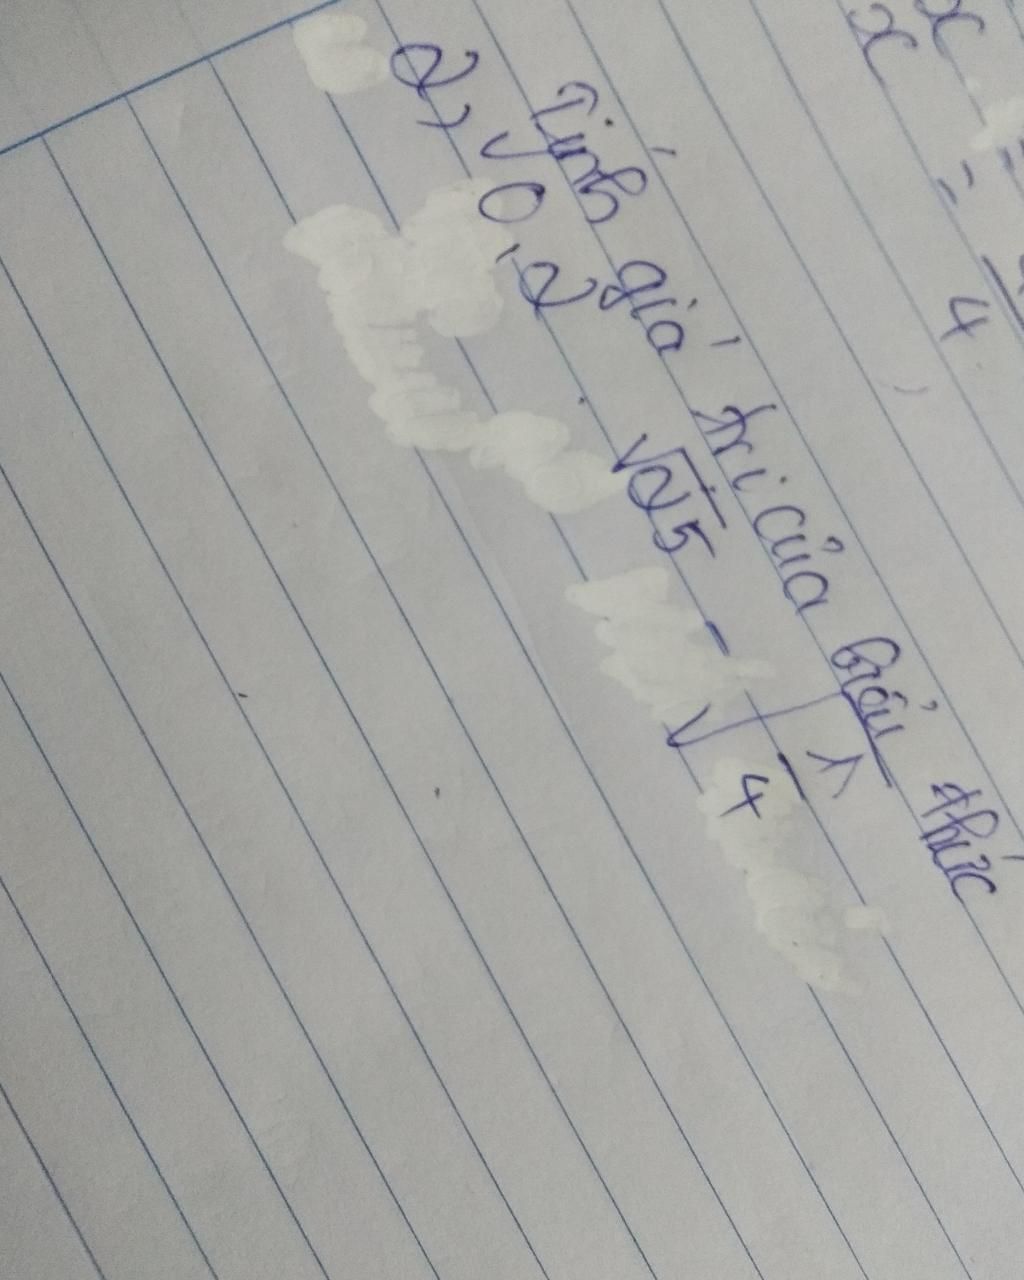 x
x = 4
Tính giá trị của biểu thức
2, √0,2 . √25 - √1/4